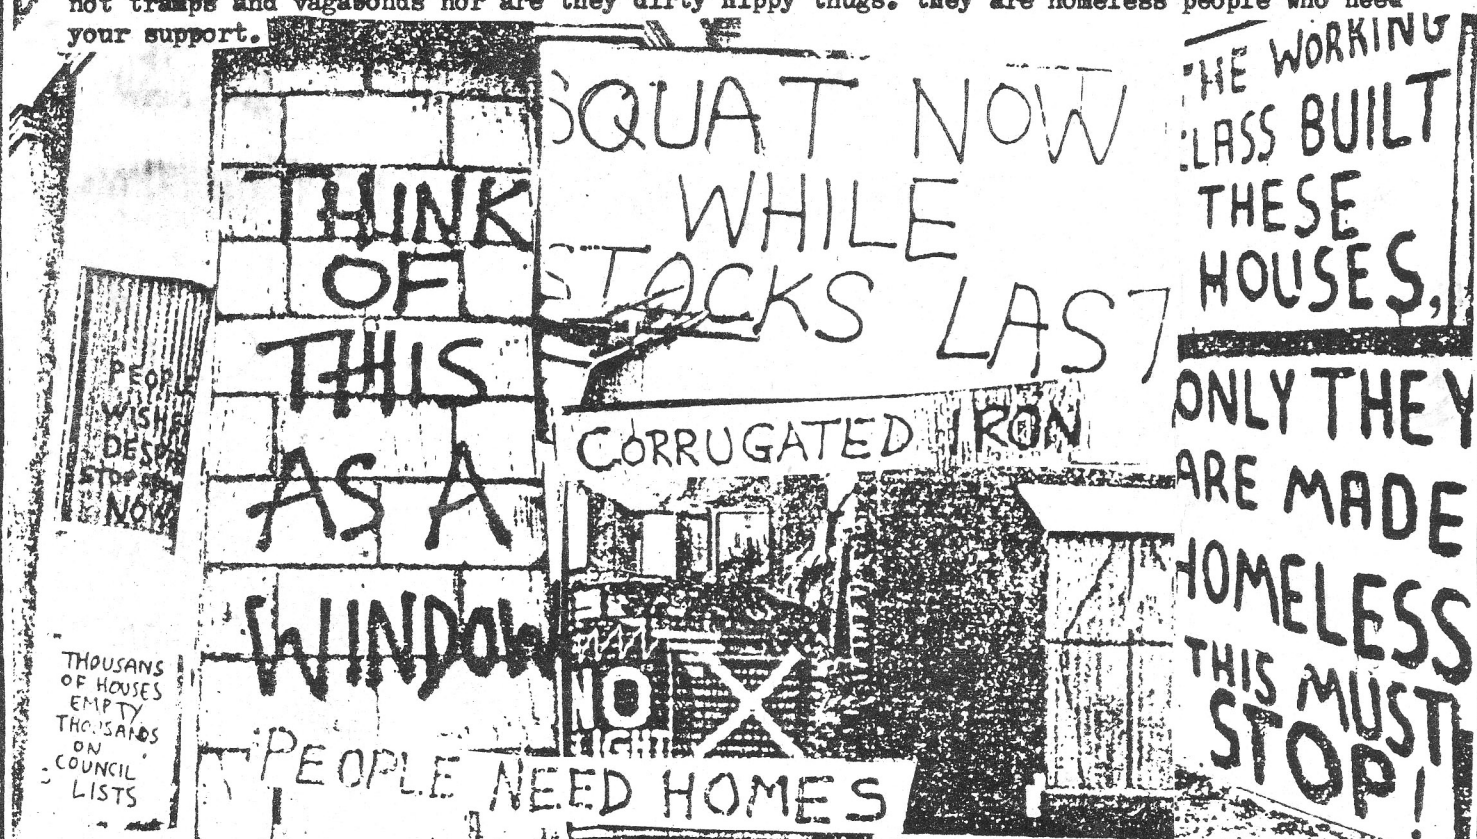 not tramps and vagabonds nor are they dirty hippy thugs. they are homeless people who need
your support.
PEOPLE
WISHE
DESP
STOP
NOW
THOUSANS
OF HOUSES
EMPTY
THOUSANDS
ON
COUNCIL
LISTS
THINK
OF
THIS
AS A
WINDOW
PEOPLE NEED HOMES
SQUAT NOW
WHILE
STOCKS LAST
CORRUGATED IRON
NO
THE WORKING
CLASS BUILT
THESE
HOUSES,
ONLY THEY
ARE MADE
HOMELESS
THIS MUST
STOP!